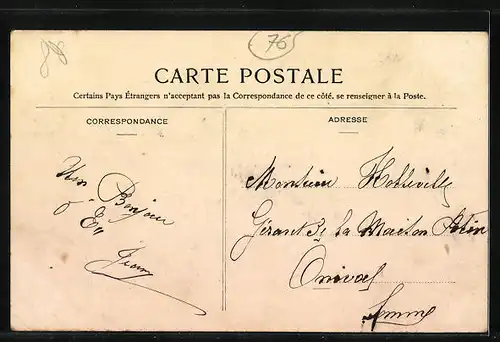 76
CARTE POSTALE
Certains Pays Étrangers n'acceptent pas la Correspondance de ce côté, se renseigner à la Poste.
CORRESPONDANCE
ADRESSE
Bonjour
Monsieur
Gérant de la Maison
Onival
Somme